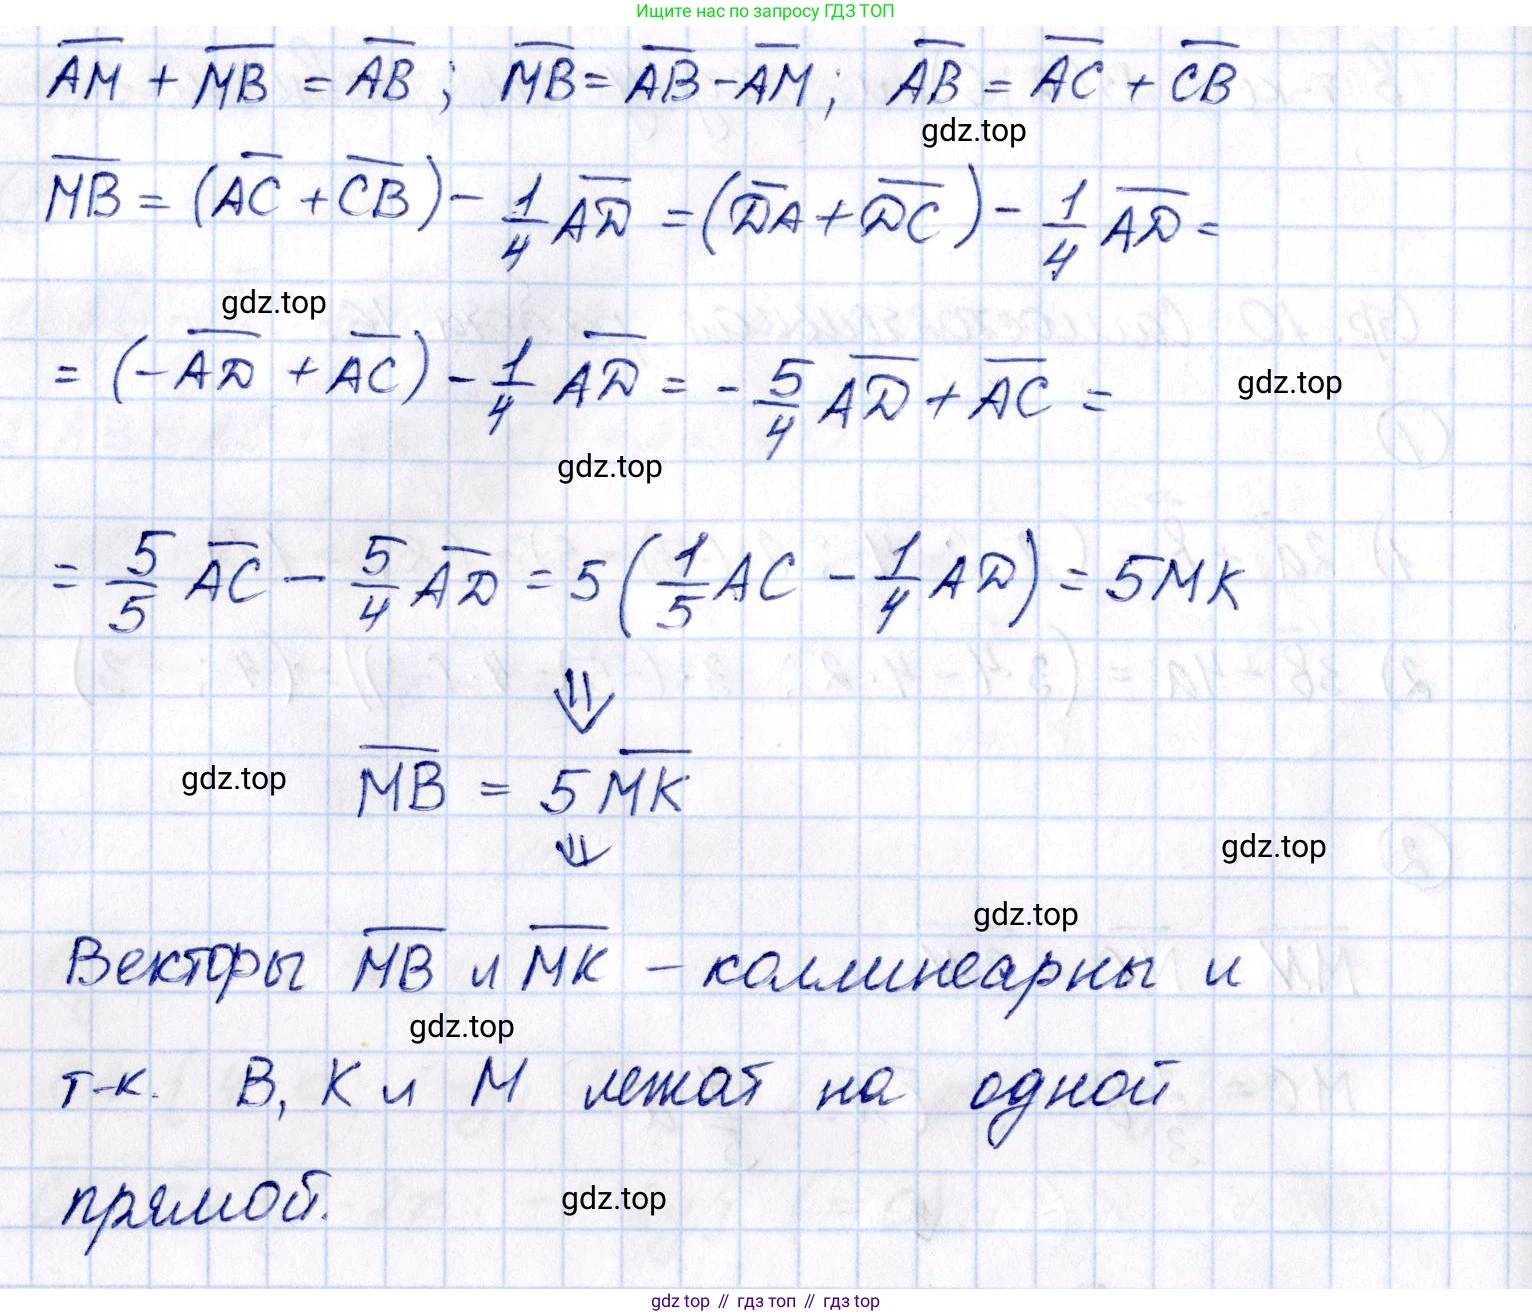 Ищите нас по запросу ГДЗ ТОП
AM + MB = AB; MB = AB - AM; AB = AC + CB
gdz.top
MB = (AC + CB) - 1/4 AD = (DA + DC) - 1/4 AD =
gdz.top
= (-AD + AC) - 1/4 AD = - 5/4 AD + AC =
gdz.top
gdz.top
= 5/5 AC - 5/4 AD = 5(1/5 AC - 1/4 AD) = 5MK
⇓
MB = 5 MK
gdz.top
⇓
gdz.top
gdz.top
Векторы MB и MK - коллинеарны и
gdz.top
т-к. B, K и M лежат на одной
прямой.
gdz.top
gdz top // гдз топ // гдз top